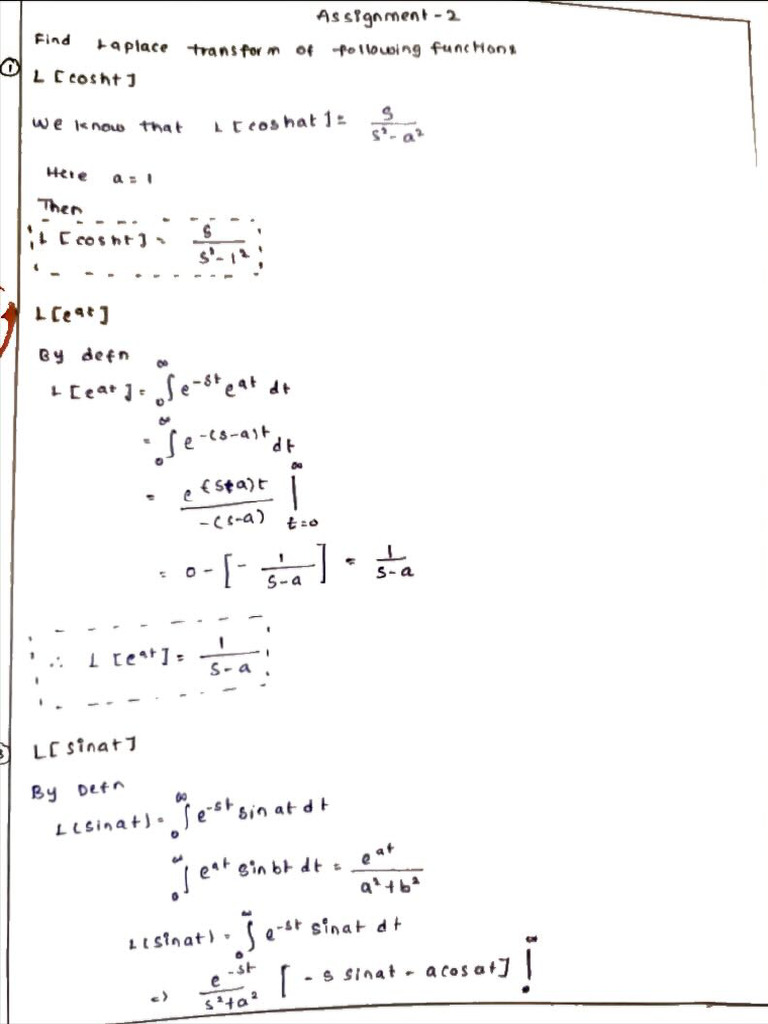 Assignment-2
Find Laplace transform of following functions
① L[cosht]
We know that L[coshat] = s/(s²-a²)
Here a=1
Then
L[cosht] = s/(s²-1²)
L[e^at]
By defn
L[e^at] = ∫₀^∞ e^-st e^at dt
= ∫₀^∞ e^-(s-a)t dt
= e^-(s-a)t/-(s-a) |_t=0^∞
= 0-[-1/(s-a)] = 1/(s-a)
∴ L[e^at] = 1/(s-a)
L[sinat]
By Defn
L(sinat) = ∫₀^∞ e^-st sin at dt
∫₀^∞ e^at sinbt dt = e^at/(a²+b²)
L(sinat) = ∫₀^∞ e^-st sinat dt
=> e^-st/(s²+a²) [-s sinat - a cosat] |₀^∞